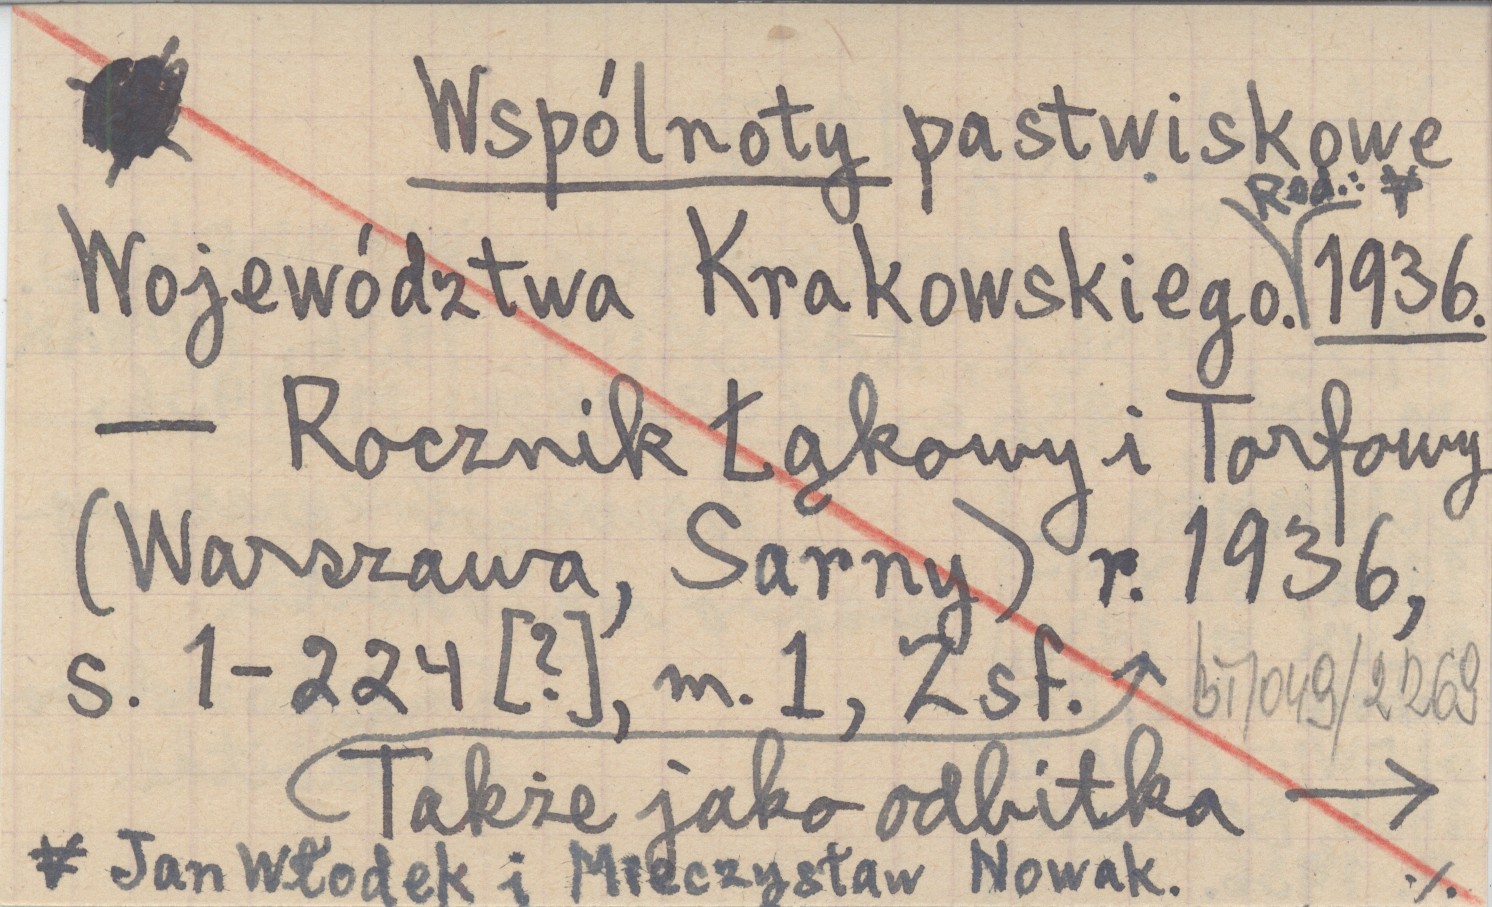 Wspólnoty pastwiskowe
Red.: *
Województwa Krakowskiego. 1936.
— Rocznik Łąkowy i Torfowy
(Warszawa, Sarny) r. 1936,
s. 1-224 [?], m. 1, Zsf.
/049/2269
Także jako odbitka →
* Jan Włodek i Mieczysław Nowak.
./.